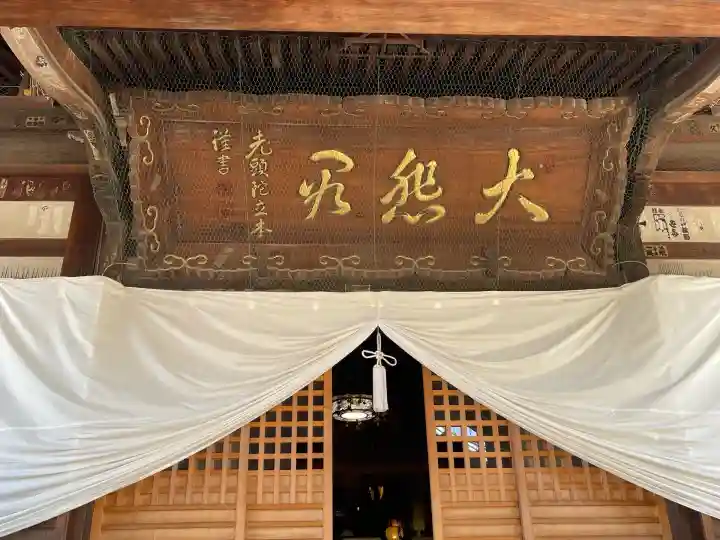 大悲閣
老頭陀立本
謹書